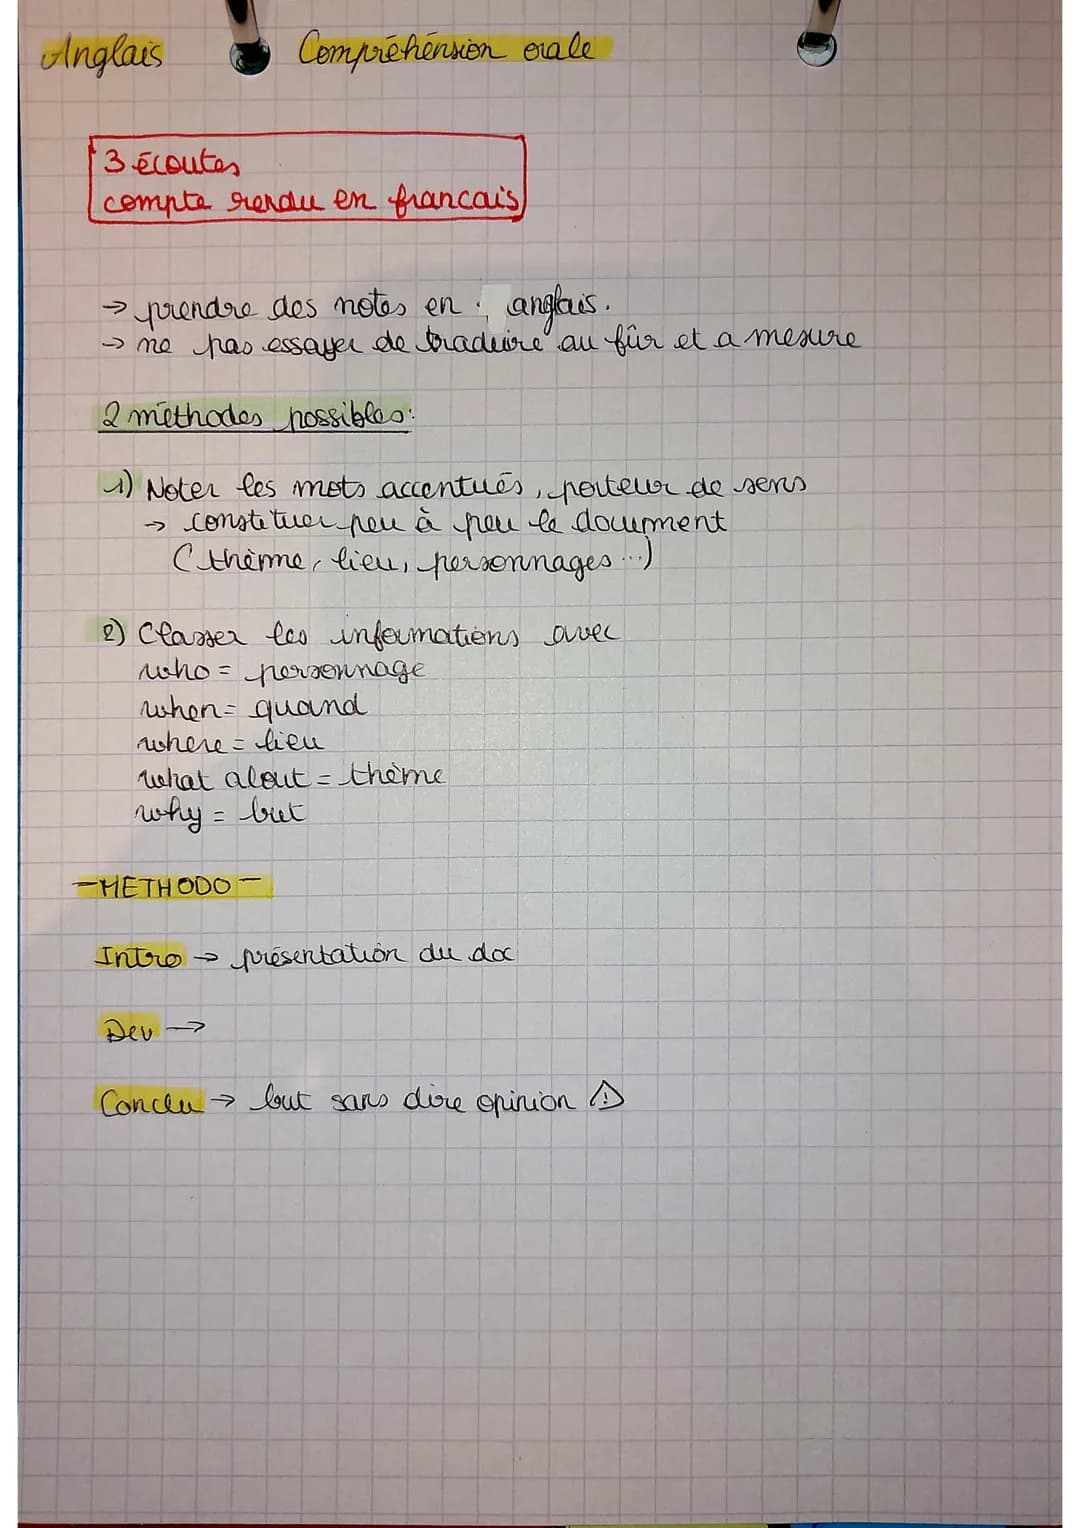 Anglais Compréhension orale
3 écoutes
compte rendu en francais
→ prendre des notes en : anglais.
→ ne pas essayer de traduire au fûr et a mesure
2 méthodes possibles:
1) Noter les mots accentués, porteur de sens
→ constituer peu à peu le document
(thème, lieu, personnages...)
2) Classer les informations avec
who = personnage
when = quand
where = lieu
what about = thème
why = but
- METHODO -
Intro → présentation du doc
Dev →
Conclu → but sans dire opinion ⚠